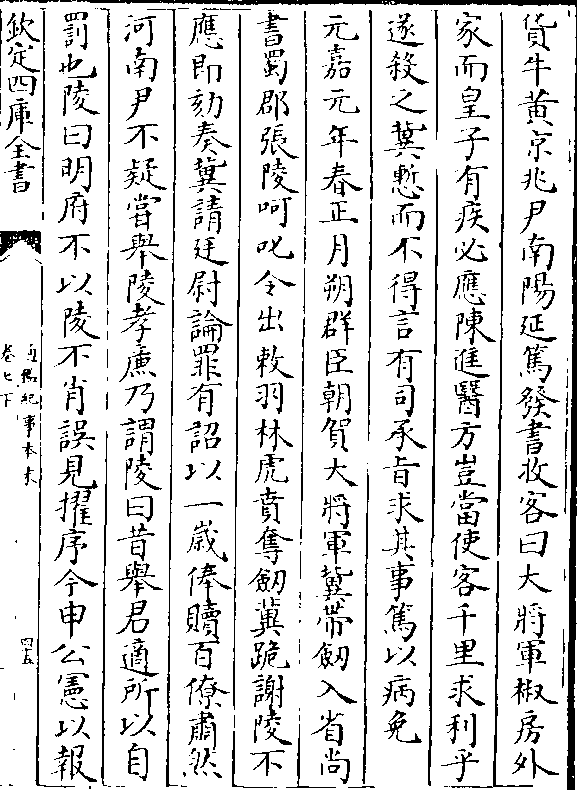 貨牛黄京兆尹南陽延篤發書收客曰大將軍椒房外
家而皇子有疾必應陳進醫方豈當使客千里求利乎
遂殺之冀慙而不得言有司承㫖求其事篤以病免
元嘉元年春正月朔群臣朝賀大將軍冀帶劒入省尚
書蜀郡張陵呵叱令出敕羽林虎賁奪劒冀跪謝陵不
應即劾奏冀請廷尉論罪有詔以一歲俸贖百僚肅然
河南尹不疑嘗舉陵孝廉乃謂陵曰昔舉君適所以自
罰也陵曰明府不以陵不肖誤見擢序今申公憲以報
欽定四庫全書
通鑑紀事本末
卷七下
四五